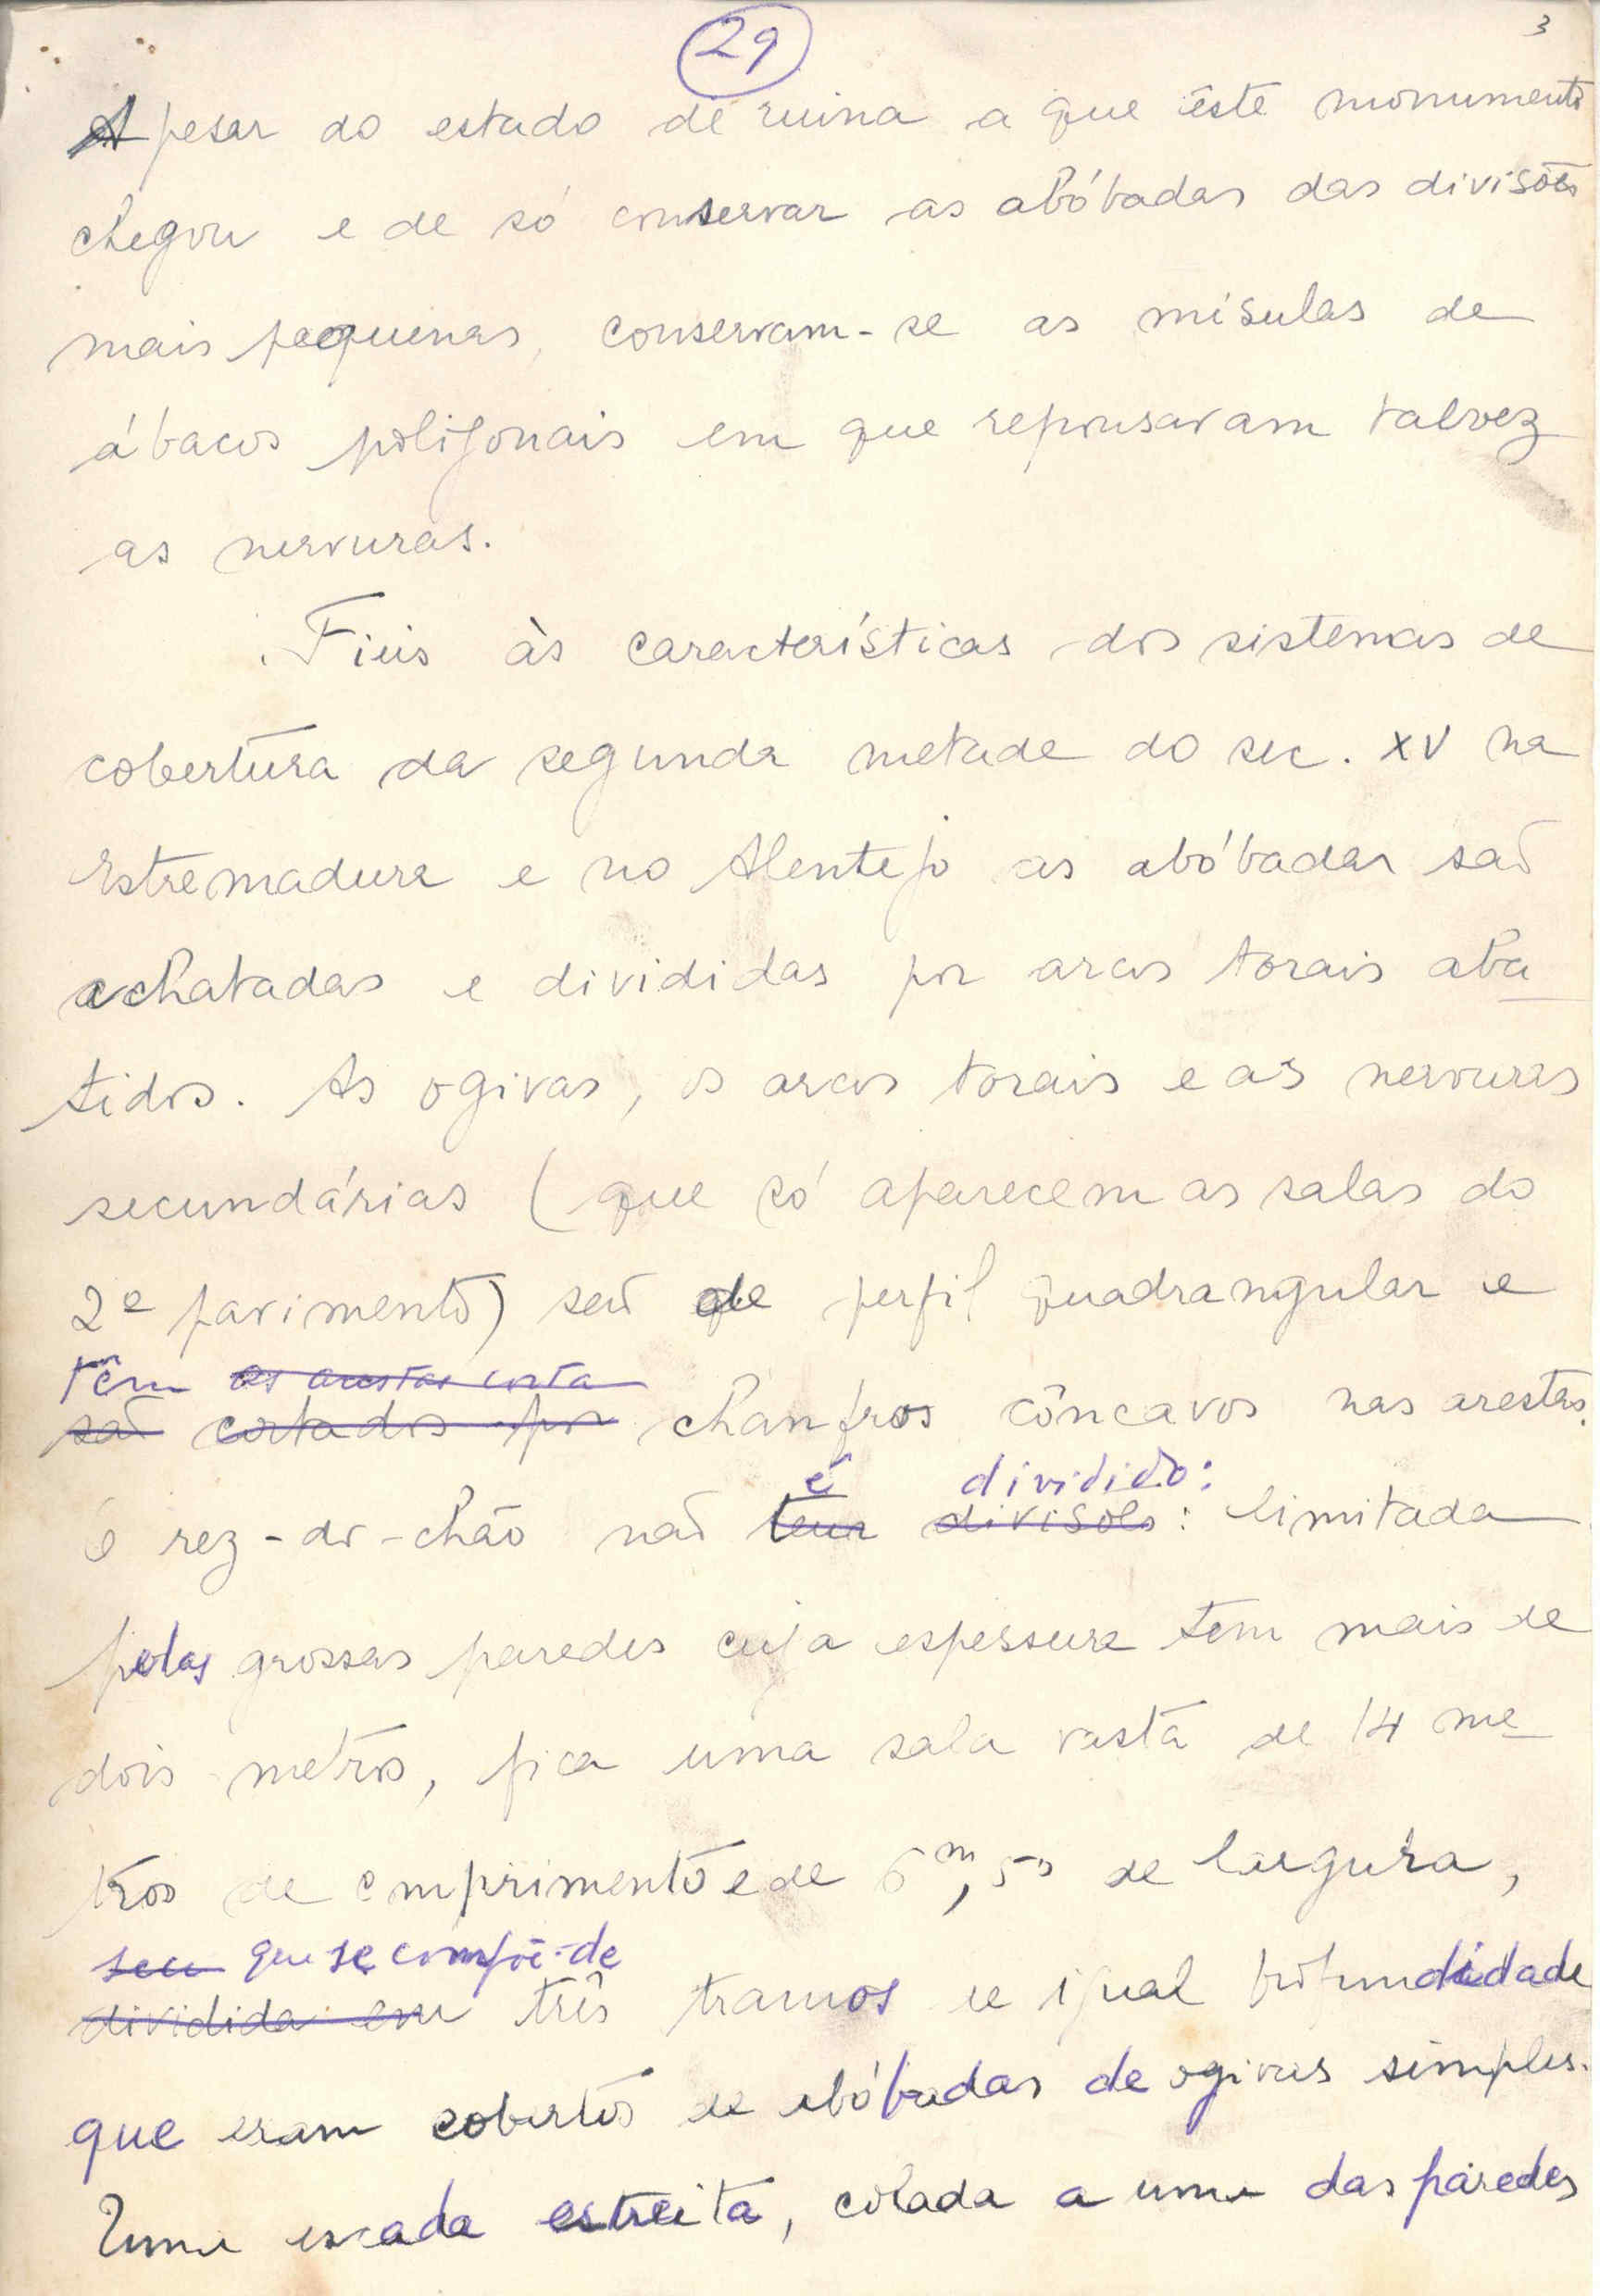 29
3
Apesar do estado de ruina a que êste monumento
chegou e de só conservar as abóbadas das divisões
mais pequenas, conservam-se as mísulas de
ábacos poligonais em que repousavam talvez
as nervuras.
Fieis às características dos sistemas de
cobertura da segunda metade do sec. XV na
Estremadura e no Alentejo as abóbadas são
achatadas e divididas por arcos torais aba
tidos. As ogivas, os arcos torais e as nervuras
secundárias (que só aparecem as salas do
2º pavimento) são de perfil quadrangular e
têm as arestas corta
são cortados por chanfros côncavos nas arestas.
é dividido:
O rez-do-chão não tem divisões: limitada
pelas grossas paredes cuja espessura tem mais de
dois metros, fica uma sala vasta de 14 me
tros de comprimento e de 6m,50 de largura,
que se compõe de
dividida em três tramos de igual profundidade
que eram cobertos de abóbadas de ogivas simples.
Uma escada estreita, colada a uma das paredes